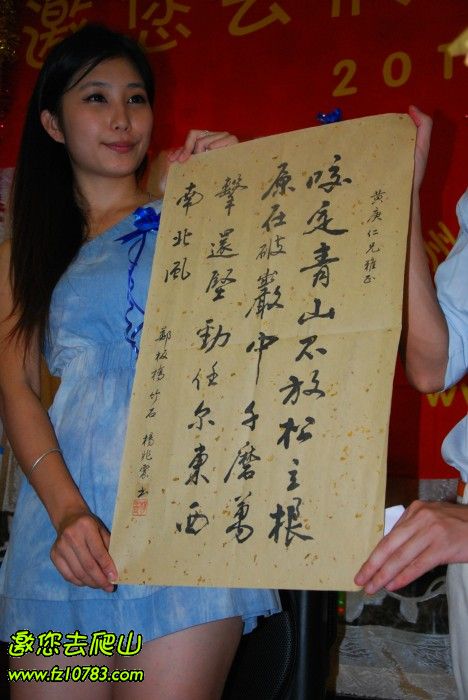 邀您去
201
州
黄庚仁兄雅正
咬定青山不放松立根
原在破巖中千磨萬
擊還堅勁任尔東西
南北風
鄭板橋竹石 楊兆書
邀您去爬山
www.fz10783.com